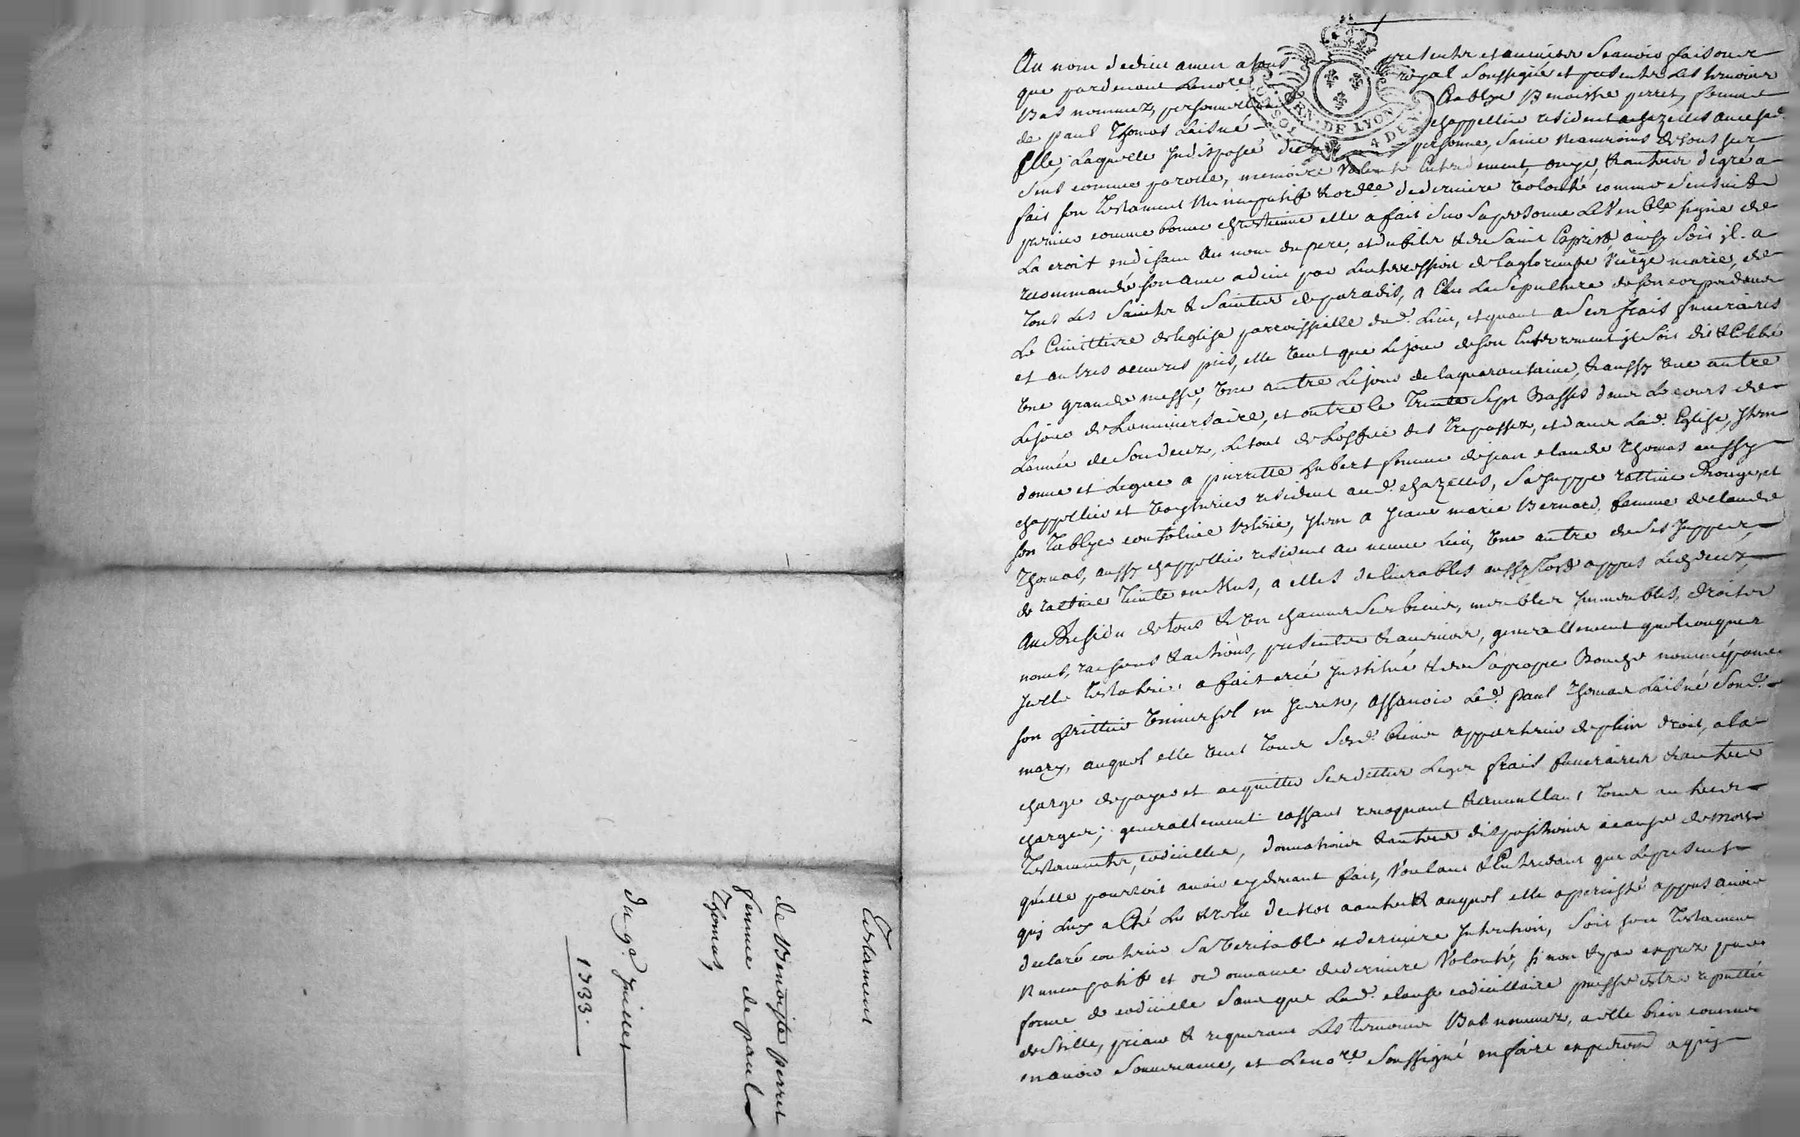 Testament
de Benoiste perret
femme de paul
Thomas,
du 9e. Juillet
1733.
GEN. DE LYON
SOLS 4 DEN.
Au nom de dieu amen a tous presents et auenirs scauoir faisons
que pardeuant Le nore. royal soussigné et presents Les temoins
Bas nommez, personnellement Establye Benoiste perret, femme
de paul Thomas Laisné chappellier resident a chazelles auecque
Elle, Laquelle Indisposée de sa personne, saine neanmoins de tous ses
sens comme parolle, memoire Volonté Entendement, ouye, & autres de gré a
fait son testament Nuncupatif & ordce. de derniere Volonté comme s'ensuit &
premier comme bonne chrestienne elle a fait sur sa personne Le Venble. signe de
La croix en disant Au nom du pere, et du fils & du saint Esprit, ainsy soit jl. a
recommandé son ame a dieu par L'intercession de La glorieuse Vierge marie, de
tous Les saints & saintes de paradis, a Elu La sepulture de son corps dans
Le Cimittiere de Leglise parroissialle dud. Lieu, et quant a ses frais funeraires
et autres oeuures pies, elle veut que Le jour de son Enterrement jl soit dit & Celebré
Vne grande messe, Vne autre Le jour de la quarantaine, & aussy Vne autre
Le jour de L'anniuersaire, et outre ce Trente sept Basses dans Le cours de
L'année de son deuz, Le tout de L'office des trepassez, et dans Lad. Eglise, Jtem
donne et Legue a pierrette hubert femme de jean claude Thomas aussy
chappellier et resident aud. chazelles, sa juppe rattine Rouge, et
son Tablye, Jtem a jeane marie Bernard, femme de claude
Thomas, aussy chappellier resident au meme Lieu, Vne autre de ses juppes,
de rattine, a elles deliurables aussytost apres Led. deuz,
Au Residu de tous & Vn chacuns ses biens, meubles jmmeubles, droits
noms, raisons & actions, presents & auenirs, generallement quelconques
jcelle testatrice a fait creé jnstitué & de sa propre Bouche nommé pour
son heritier Vniuersel, asscauoir Led. paul Thomas Laisné son d.
mary, auquel elle veut tous sesd. biens appartenir de plein droit, a la
charge de payer et acquitter ses dettes Legs frais funeraires & autres
charges; generallement cassant reuoquant & annullant tous autres
Testaments, codicilles, donnations & autres dispositions a cause de mort
qu'elle pourroit auoir cy deuant fait, Voulant & Entendant que Le present
qui Luy a Eté Lu & relu de mot a autre & auquel elle a persisté apres auoir
declaré contenir sa Veritable et derniere jntention, soit son testament
Nuncupatif et ordonnance de derniere Volonté, si non & par exprez par
forme de codicille sans que Lad. clause codicillaire puisse estre reputtée
de stille, priant & requerant Les temoins Bas nommez, a elle bien connus
en auoir souuenance, et Le nore. soussigné en faire expedition a qui